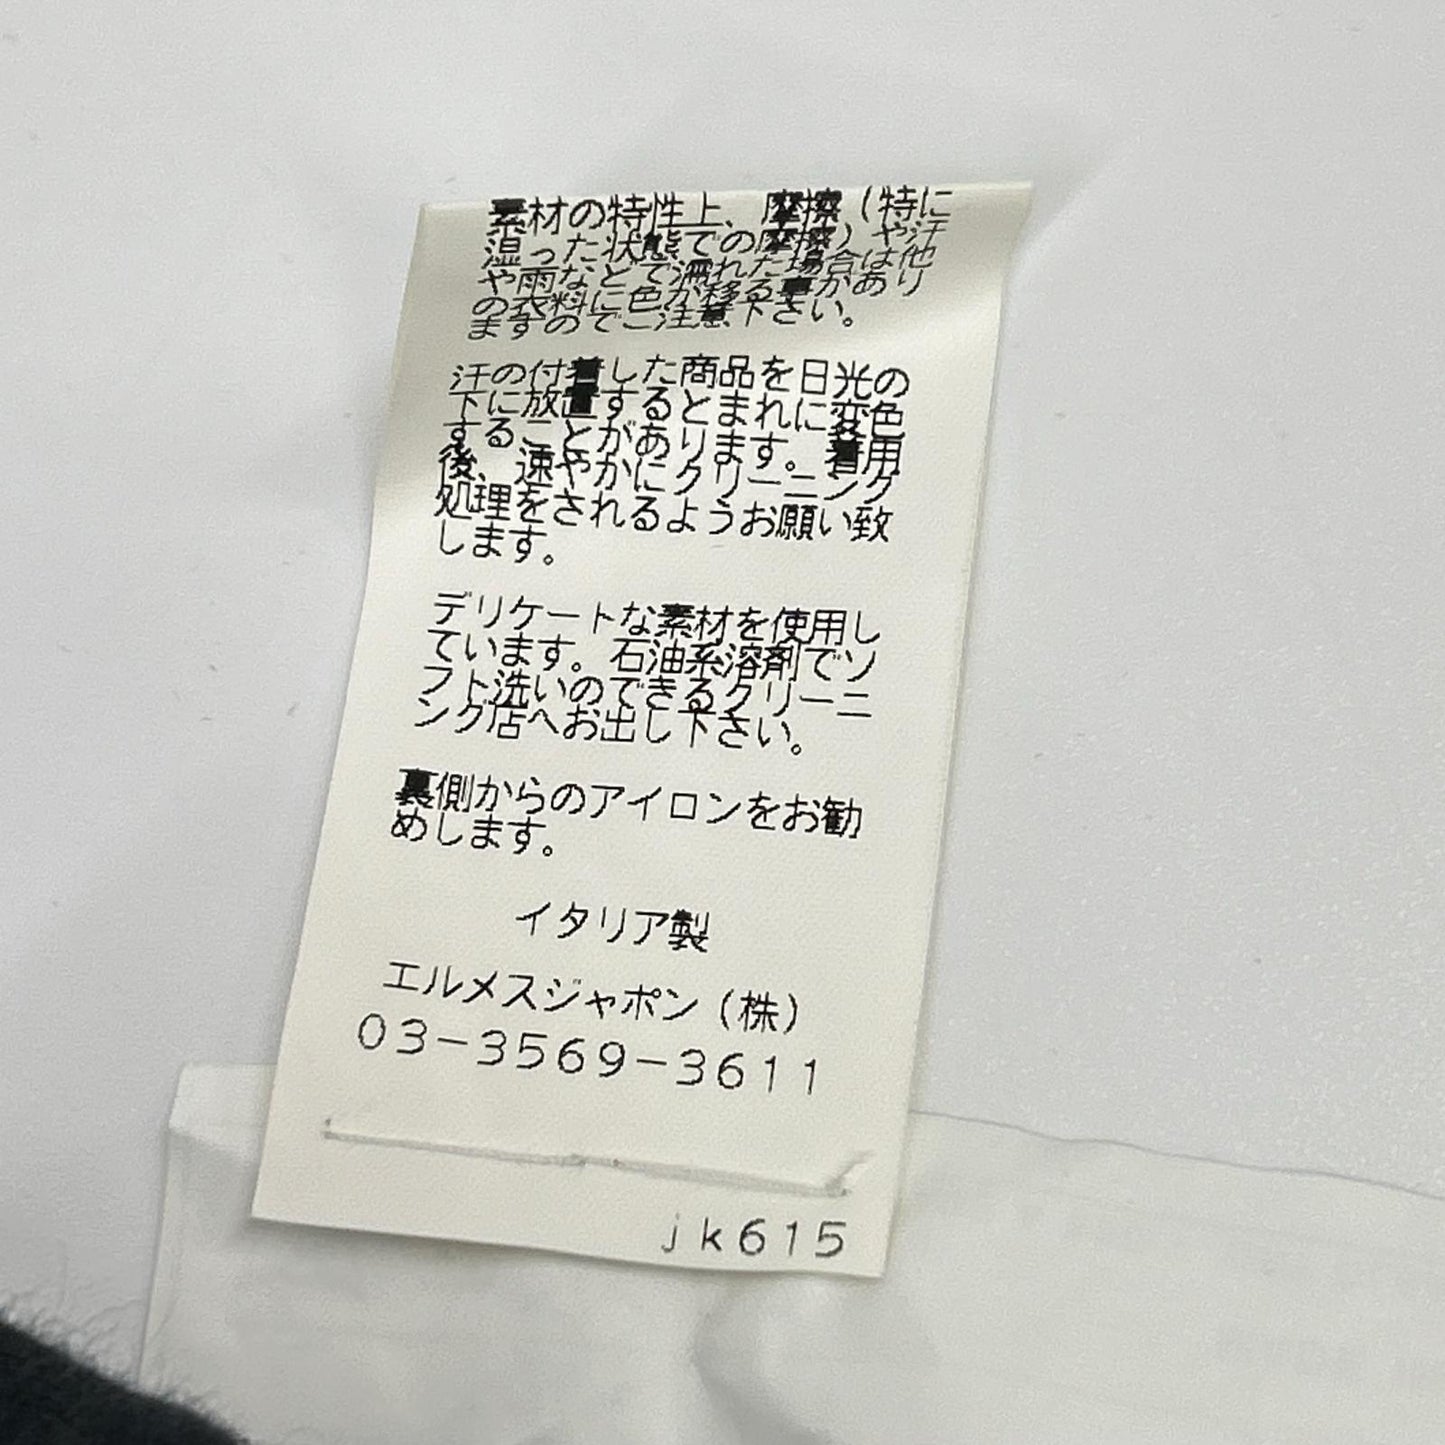 素材の特性上、摩擦（特に
湿った状態での摩擦）や汗
や雨などで濡れた場合は他
の衣料に色が移る事があり
ますのでご注意下さい。
汗の付着した商品を日光の
下に放置するとまれに変色
することがあります。着用
後、速やかにクリーニング
処理をされるようお願い致
します。
デリケートな素材を使用し
ています。石油系溶剤でソ
フト洗いのできるクリーニ
ング店へお出し下さい。
裏側からのアイロンをお勧
めします。
イタリア製
エルメスジャポン（株）
03-3569-3611
jk615